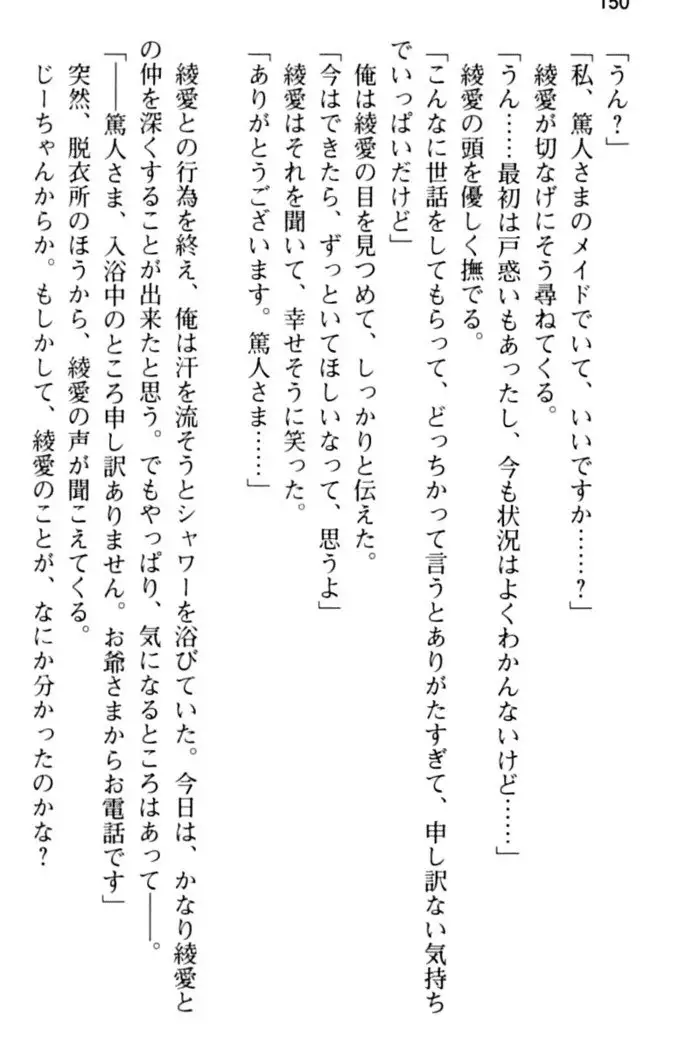 150
「うん？」
「私、篤人さまのメイドでいて、いいですか……？」
綾愛が切なげにそう尋ねてくる。
「うん……最初は戸惑いもあったし、今も状況はよくわかんないけど……」
綾愛の頭を優しく撫でる。
「こんなに世話をしてもらって、どっちかって言うとありがたすぎて、申し訳ない気持ち
でいっぱいだけど」
俺は綾愛の目を見つめて、しっかりと伝えた。
「今はできたら、ずっといてほしいなって、思うよ」
綾愛はそれを聞いて、幸せそうに笑った。
「ありがとうございます。篤人さま……」
綾愛との行為を終え、俺は汗を流そうとシャワーを浴びていた。今日は、かなり綾愛と
の仲を深くすることが出来たと思う。でもやっぱり、気になるところはあって――。
「――篤人さま、入浴中のところ申し訳ありません。お爺さまからお電話です」
突然、脱衣所のほうから、綾愛の声が聞こえてくる。
じーちゃんからか。もしかして、綾愛のことが、なにか分かったのかな？